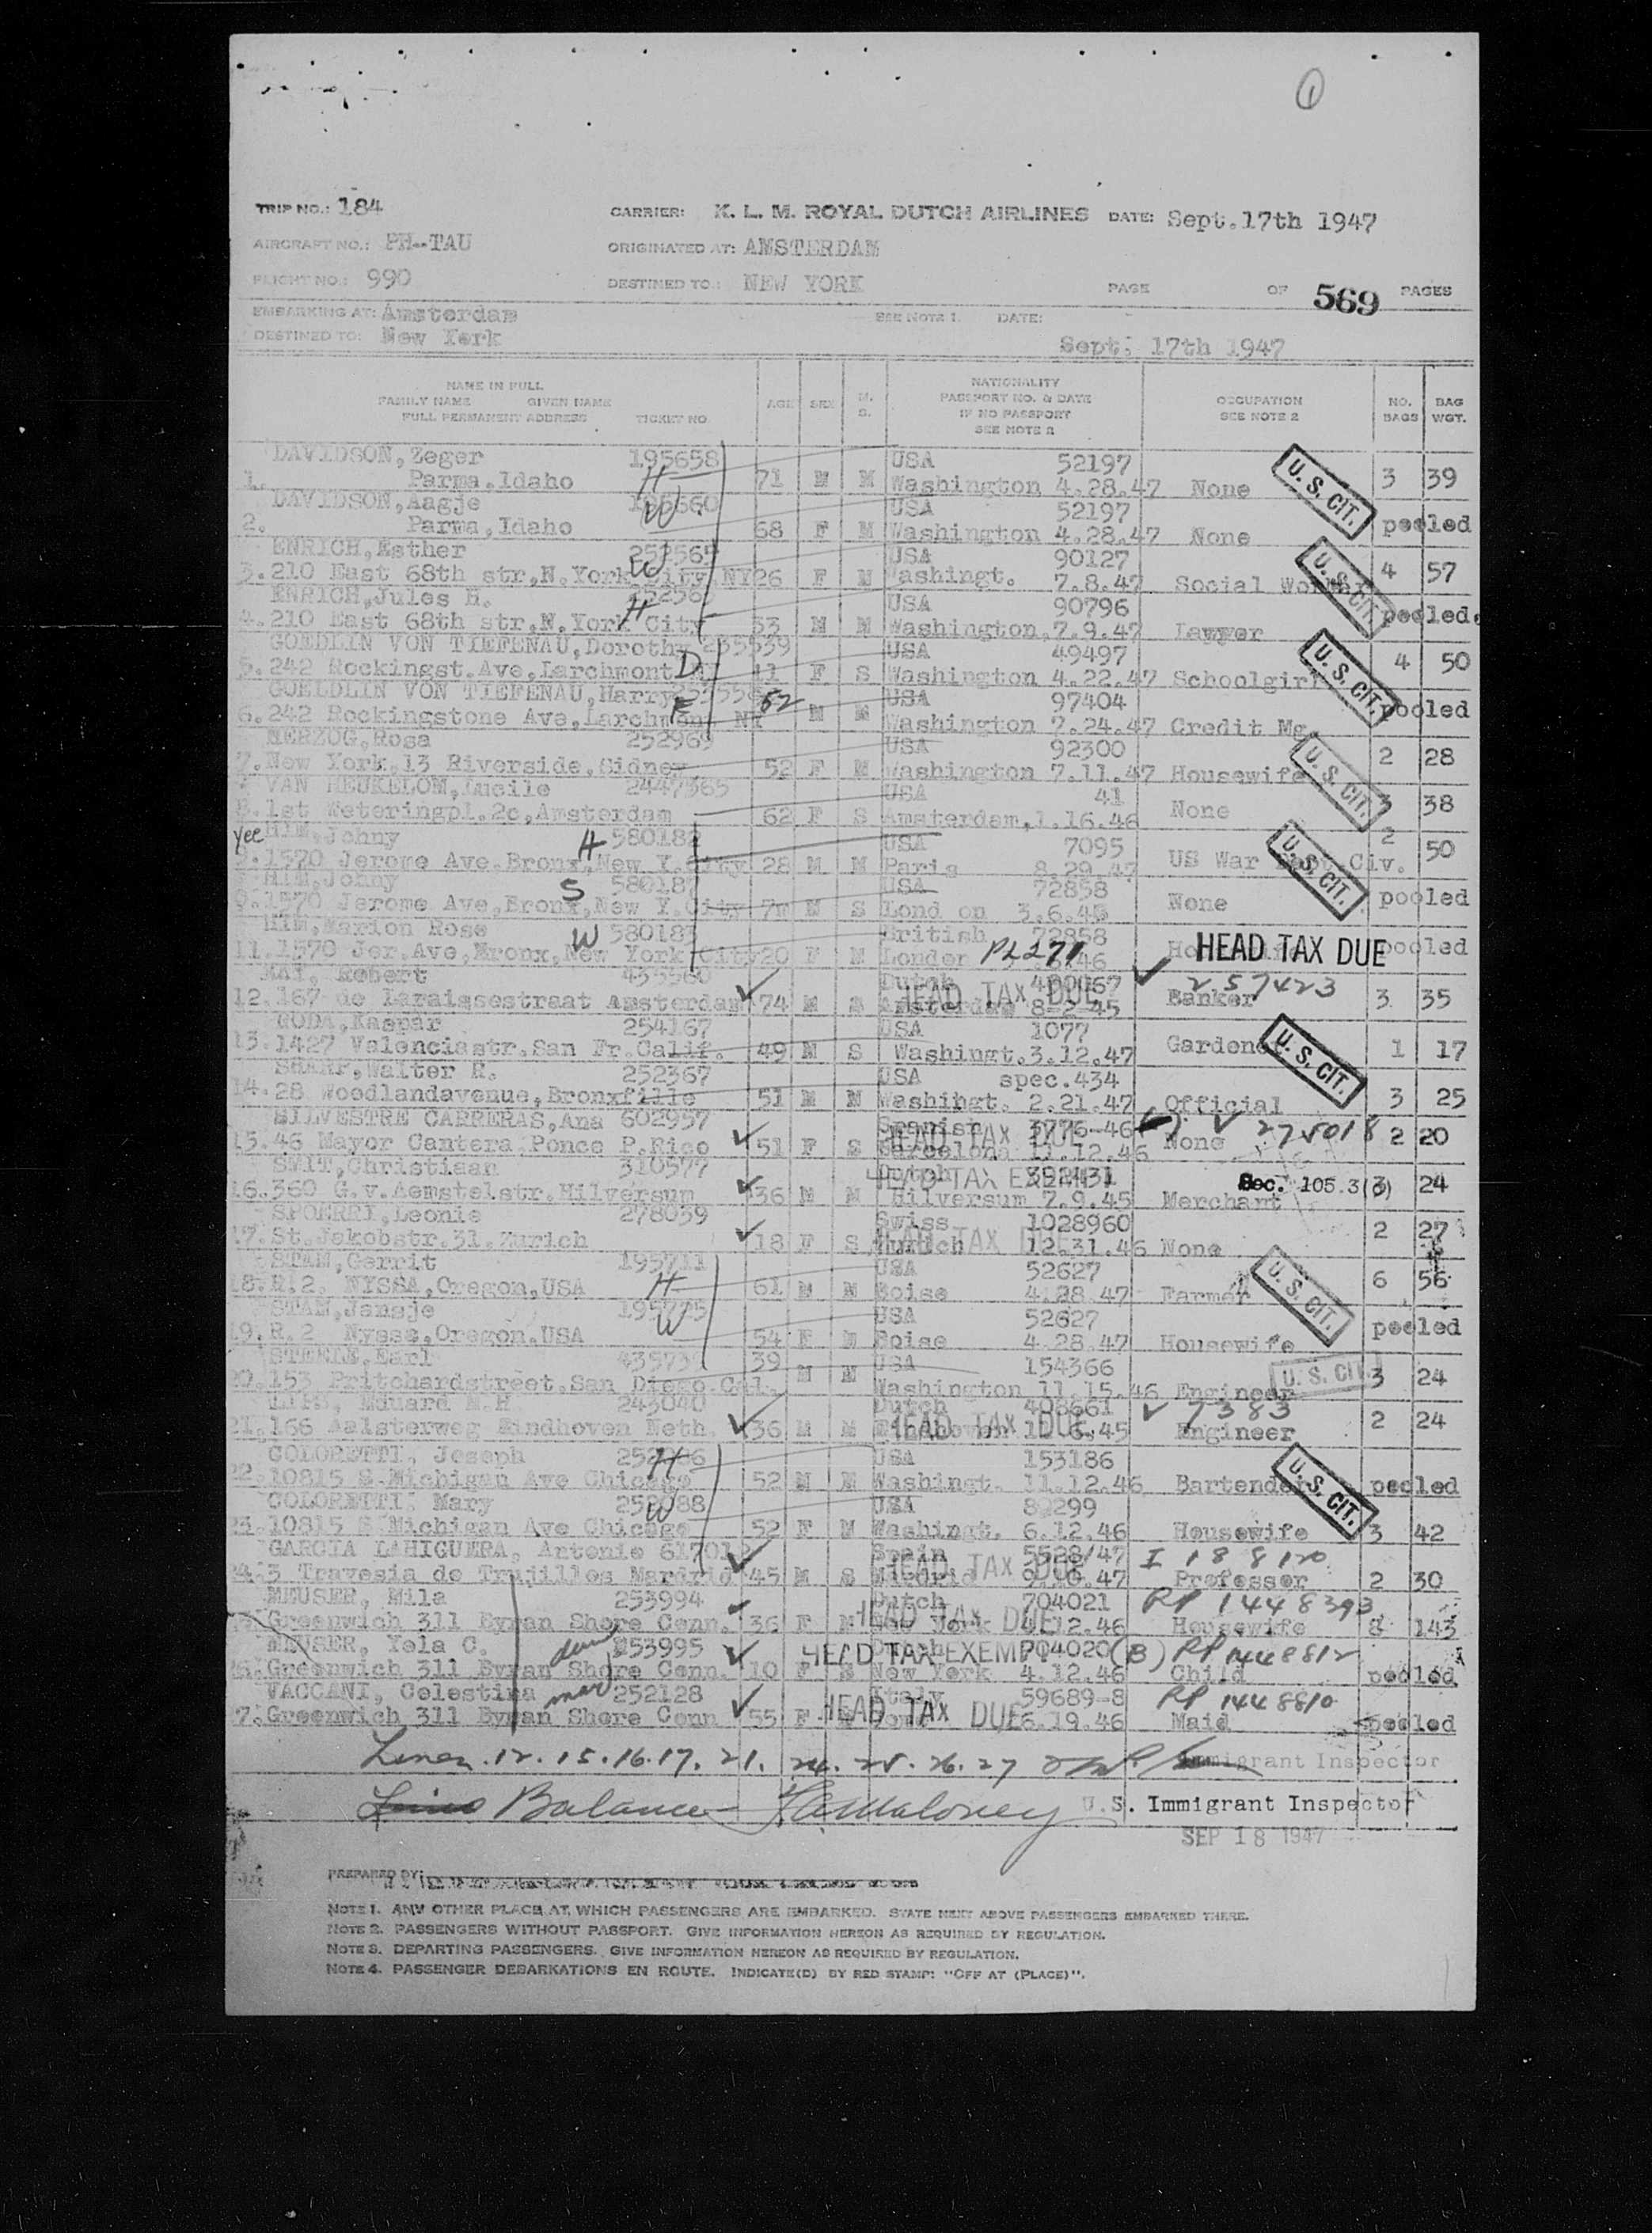 1
TRIP NO.: 184 CARRIER: K. L. M. ROYAL DUTCH AIRLINES DATE: Sept.17th 1947
AIRCRAFT NO.: PH-TAU ORIGINATED AT: AMSTERDAM
FLIGHT NO.: 990 DESTINED TO.: NEW YORK PAGE OF 569 PAGES
EMBARKING AT: Amsterdam SEE NOTE 1. DATE:
DESTINED TO: New York Sept. 17th 1947
NAME IN FULL NATIONALITY
FAMILY NAME GIVEN NAME AGE SEX M. PASSPORT NO. & DATE OCCUPATION NO. BAG
FULL PERMANENT ADDRESS TICKET NO. S. IF NO PASSPORT SEE NOTE 2 BAGS WGT.
SEE NOTE 2
DAVIDSON, Zeger 195658 USA 52197
1. Parma.Idaho H 71 M M Washington 4.28.47 None U. S. CIT. 3 39
DAVIDSON, Aagje W USA 52197
2. Parma, Idaho 68 F M Washington 4.28.47 None pooled
ENRICH, Esther W USA 90127
3. 210 East 68th str,N.York City,NY 26 F M Washingt. 7.8.47 Social U. S. CIT. 4 57
ENRICH, Jules H. H USA 90796
4. 210 East 68th str,N.York City 53 M M Washington.7.9.47 Lawyer pooled.
GOEDLIN VON TIEFENAU, Dorothy 235539 USA 49497
5. 242 Rockingst.Ave,Larchmont D 11 F S Washington 4.22.47 Schoolgirl U. S. CIT. 4 50
GOELDLIN VON TIEFENAU, Harry F 52 USA 97404
6. 242 Rockingstone Ave,Larchmont NY M M Washington 7.24.47 Credit Mg. pooled
HERZOG, Rosa 252969 USA 92300
7. New York,13 Riverside,Sidney 52 F M Washington 7.11.47 Housewife U. S. CIT. 2 28
VAN HEUKELOM, Lucile 2447365 USA 41
8. 1st Weteringpl.2c,Amsterdam 62 F S Amsterdam,1.16.46 None 3 38
HIM, Johny H 580182 USA 7095 2
9. 1570 Jerome Ave.Bronx,New Y.City 28 M M Paris 8.29.47 US War Dept.Civ. U. S. CIT. 50
HIM, Johny S 58018 USA 72858
1570 Jerome Ave,Bronx,New Y.City 7m M S Lond on 3.6.46 None pooled
HIM, Marion Rose W 580183 British 72858
11. 1570 Jer.Ave,Bronx,New York City 20 F M London HEAD TAX DUE pooled
MAY, Robert 435560 Dutch
12. 167 de Laraissestraat Amsterdam 74 M S HEAD TAX DUE Amsterdam 8-2-45 257423 Banker 3 35
RODA, Kaspar 254167 USA 1077
13. 1427 Valenciastr.San Fr.Calif. 49 M S Washingt.3.12.47 Gardener U. S. CIT. 1 17
SHARP, Walter R. 252367 USA spec.434
14. 28 Woodlandavenue,Bronxfille 51 M M Washingt. 2.21.47 Official 3 25
SILVESTRE CARRERAS, Ana 602957 Spanish 3776-46
15. 46 Mayor Cantera Ponce P.Rico 51 F S HEAD TAX DUE Barcelona 11.12.46 None 2 20
SMIT, Christiaan 310577 Dutch 392431 HEAD TAX EXEMPT
16. 360 G.v.Aemstelstr.Hilversum 36 M M Hilversum 7.9.45 Merchant Sec. 105.3(3) 24
SPOERRI, Leonie 278039 Swiss 1028960
17. St.Jakobstr.31.Zurich 18 F S HEAD TAX DUE Zurich 12.31.46 None 2 27
STAM, Gerrit 195711 USA 52627
18. R.2. NYSSA,Oregon,USA H 61 M M Boise 4.28.47 Farmer U. S. CIT. 6 56
STAM, Jansje W USA 52627
19. R.2 Nyssa,Oregon,USA 54 F M Boise 4.28.47 Housewife pooled
STEELE, Earl 39 USA 154366
20. 153 Pritchardstreet.San Diego.Cal. M M Washington 11.15.46 Engineer U. S. CIT. 3 24
Eduard M.H 243040 Dutch 408661 7383
21. 166 Aalsterweg Eindhoven Neth. 36 M M HEAD TAX DUE Engineer 2 24
COLORETTI, Joseph H USA 153186
22. 10815 S-Michigan Ave Chicago 52 M M Washingt. 11.12.46 Bartender U. S. CIT. pooled
COLORETTI, Mary W USA
23. 10815 S Michigan Ave Chicago 52 F M Washingt. 6.12.46 Housewife 3 42
GARCIA LAHIGUERA, Antonio Spain 5528/47 I 18 8120
24. 5 Travesia de Trujillos Mardrid 45 M S HEAD TAX DUE Madrid Professor 2 30
MEUSER, Mila 253994 Dutch 704021 RP 1448393
Greenwich 311 Byran Shore Conn. 36 F M HEAD TAX DUE New York 4.12.46 Housewife 8 143
MEUSER, Yela C. 253995 HEAD TAX EXEMPT 704020 (B) RP 1448812
26. Greenwich 311 Byran Shore Conn. 10 F S New York 4.12.46 Child pooled
VACCANI, Celestina maid 252128 Italy 59689-8 RP 1448810
27. Greenwich 311 Byran Shore Conn 55 F HEAD TAX DUE 6.19.46 Maid pooled
Lines.12.15.16.17.21. 24.25.26.27 Immigrant Inspector
Balance Maloney U.S. Immigrant Inspector
SEP 18 1947
PREPARED BY:
NOTE 1. ANY OTHER PLACE AT WHICH PASSENGERS ARE EMBARKED. STATE NEXT ABOVE PASSENGERS EMBARKED THERE.
NOTE 2. PASSENGERS WITHOUT PASSPORT. GIVE INFORMATION HEREON AS REQUIRED BY REGULATION.
NOTE 3. DEPARTING PASSENGERS. GIVE INFORMATION HEREON AS REQUIRED BY REGULATION.
NOTE 4. PASSENGER DEBARKATIONS EN ROUTE. INDICATE(D) BY RED STAMP: "OFF AT (PLACE)".